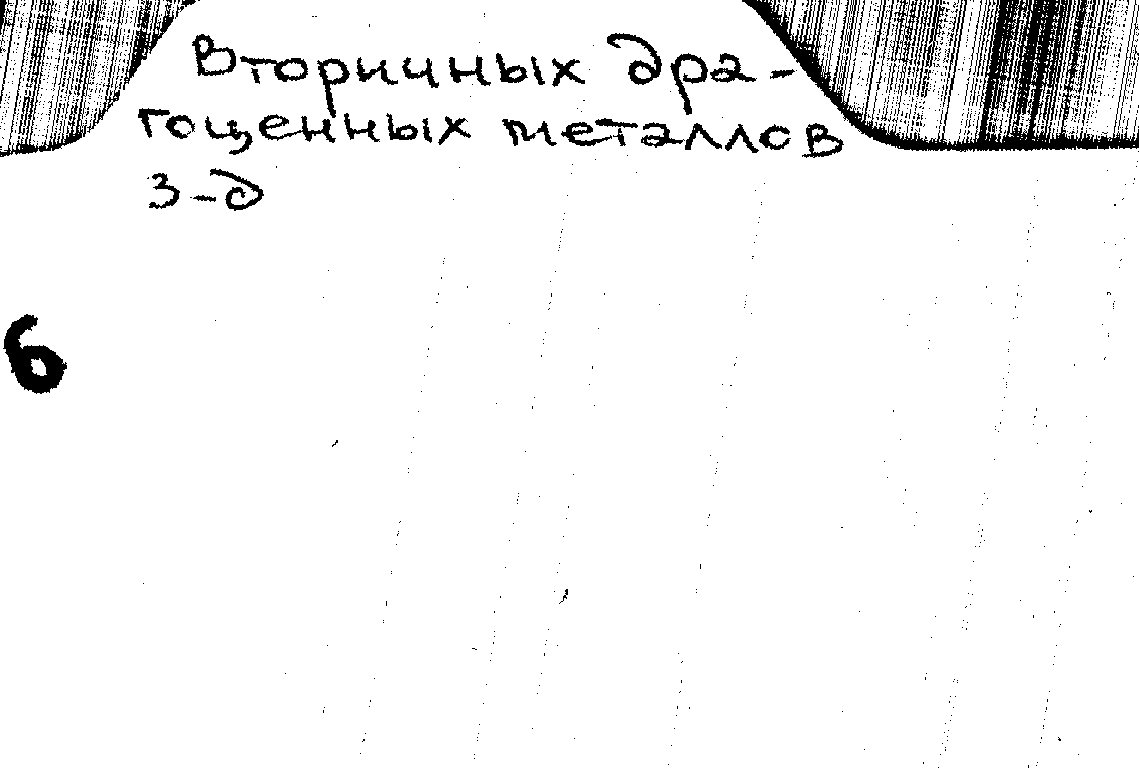 Вторичных дра-
гоценных металлов
з-д
6